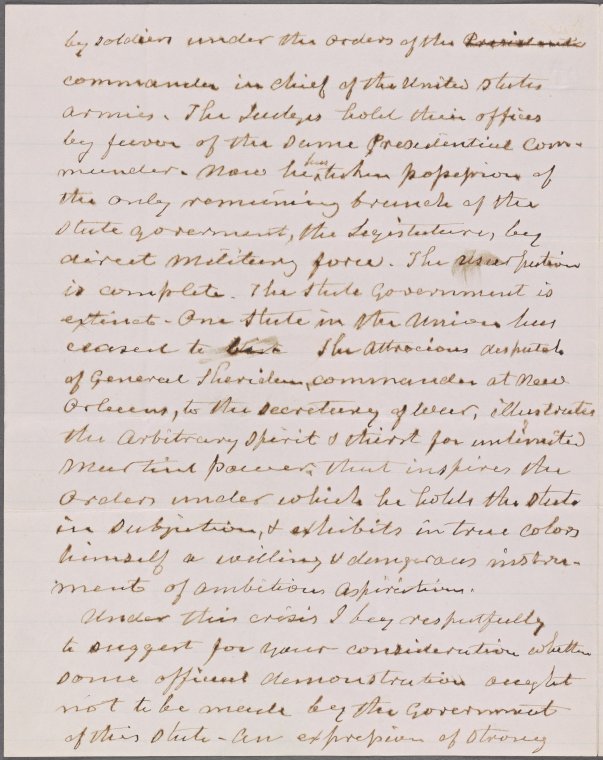 by soldiers under the orders of the Presidents
commander in chief of the United States
armies. The Judges hold their offices
by favor of the same Presidential com-
mander. Now he has taken possession of
the only remaining branch of the
State goverment, the Legislature, by
direct Military force. The usurpation
is complete. The State Government is
extinct. One State in the Union has
ceased to The Attrocious dispatch
of General Sheridan, commander at New
Orleans, to the Secretary of War, illustrates
the Arbitrary spirit & thirst for unlimited
Martial power, that inspires the
Orders under which he holds the State
in Subjection, & exhibits in true colors
himself a willing & dangerous instru-
ment of ambitious aspirations.
Under this crisis I beg respectfully
to suggest for your consideration whether
some official demonstration ought
not to be made by the Government
of this State - An expression of strong